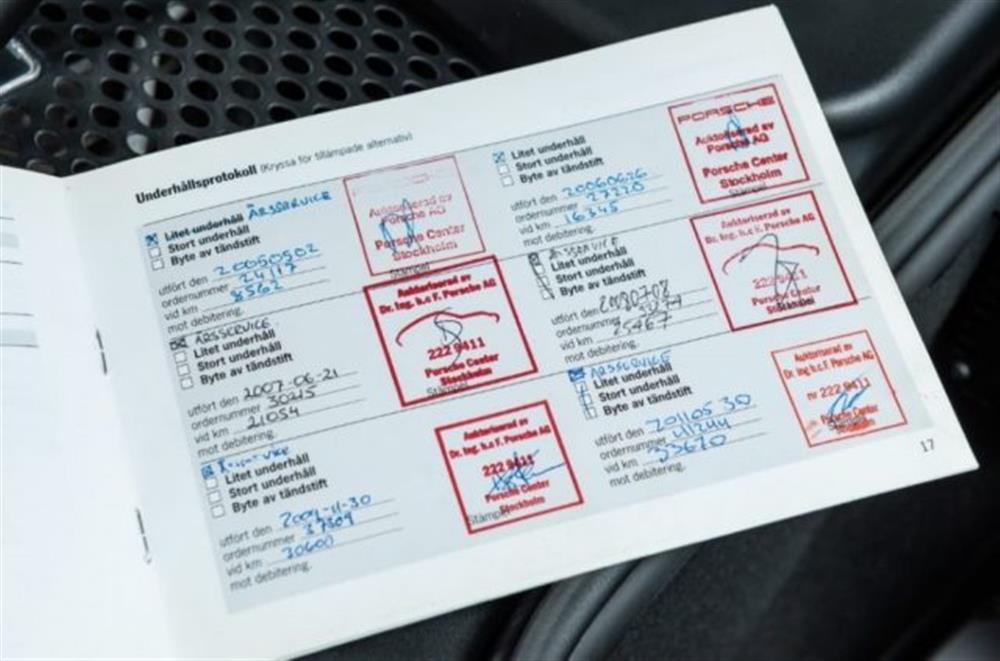 Underhållsprotokoll (Kryssa för tillämpade alternativ)
Litet underhåll ÅRSSERVICE
Stort underhåll
Byte av tändstift
utfört den 20050502
ordernummer 24117
vid km 8562
mot debitering.
Auktoriserad av
Porsche AG
Porsche Center
Stockholm
Stämpel
Litet underhåll
Stort underhåll
Byte av tändstift
utfört den 20060626
ordernummer 27220
vid km 16345
mot debitering.
PORSCHE
Auktoriserad av
Porsche AG
Porsche Center
Stockholm
Stämpel
ÅRSSERVICE
Litet underhåll
Stort underhåll
Byte av tändstift
utfört den 2007-06-21
ordernummer 30215
vid km 21054
mot debitering.
Auktoriserad av
Dr. Ing. h.c F. Porsche AG
222 9411
Porsche Center
Stockholm
Stämpel
ÅRSSERVICE
Litet underhåll
Stort underhåll
Byte av tändstift
utfört den 20080708
ordernummer
vid km 25467
mot debitering.
Auktoriserad av
Dr. Ing. h.c F. Porsche AG
222 9411
Porsche Center
Stockholm
Litet underhåll
Stort underhåll
Byte av tändstift
utfört den
ordernummer
vid km 30600
mot debitering.
Auktoriserad av
Dr. Ing. h.c F. Porsche AG
222 9411
Porsche Center
Stockholm
Stämpel
ÅRSSERVICE
Litet underhåll
Stort underhåll
Byte av tändstift
utfört den 20110530
ordernummer 41244
vid km 33670
mot debitering.
Auktoriserad av
Dr. Ing. h.c F. Porsche AG
nr 222 9411
Porsche Center
Stockholm
17